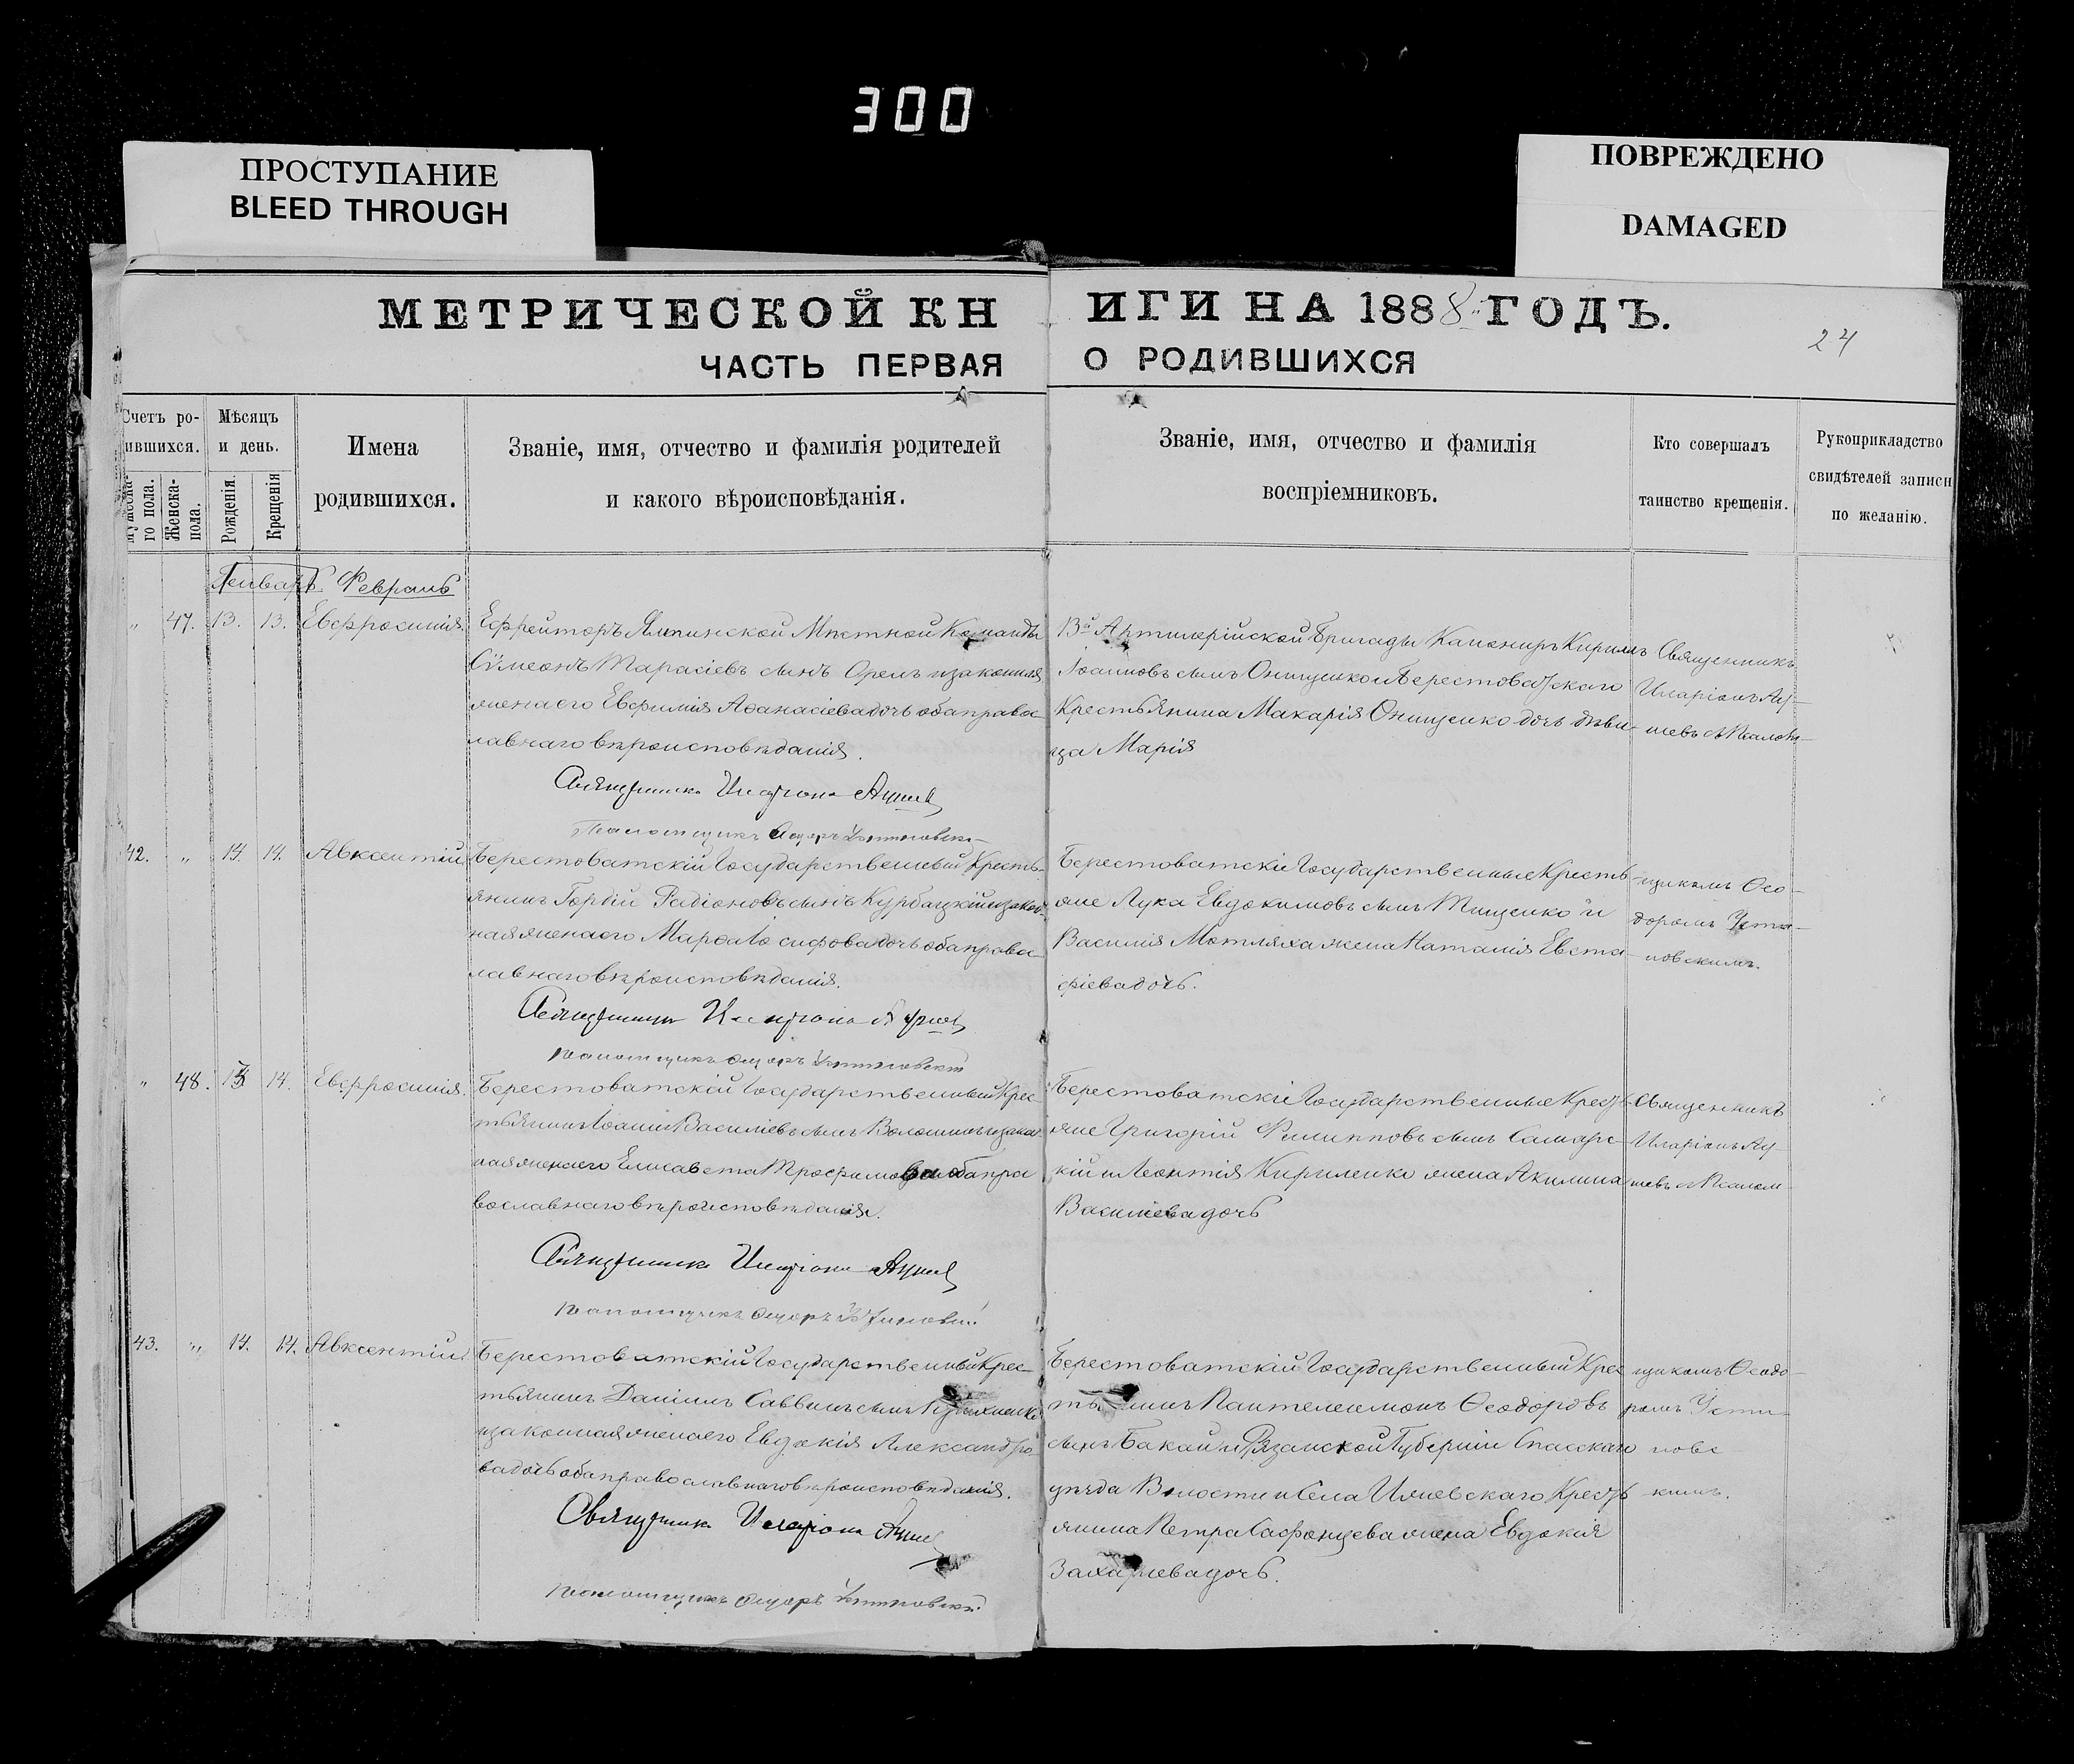 300
ПРОСТУПАНИЕ
BLEED THROUGH
ПОВРЕЖДЕНО
DAMAGED
МЕТРИЧЕСКОЙ КН
ИГИ НА 1888 ГОДЪ.
24
ЧАСТЬ ПЕРВАЯ
О РОДИВШИХСЯ
Счетъ ро-
ившихся.
го пола.
Женска-
пола.
Мѣсяцъ
и день.
Рожденія.
Крещенія
Имена
родившихся.
Званіе, имя, отчество и фамилія родителей
и какого вѣроисповѣданія.
Званіе, имя, отчество и фамилія
воспріемниковъ.
Кто совершалъ
таинство крещенія.
Рукоприкладство
свидѣтелей записи
по желанію.
Январь Февраль
„ 47. 13. 13. Евфросинія.
Ефрейторъ Ялпинской Мѣстной Команды
Сѵмеонъ Тарасіевъ сынъ Орелъ и законная
жена его Евфимія Аѳанасіева дочь оба правос-
лавнаго вѣроисповѣданія.
Священникъ Иларіонъ
13й Артилерійской Бригады Канониръ Кирилъ
Іоанновъ сынъ Онищенко и Берестоватскаго
Крестьянина Макарія Онищенко дочь дѣви-
ца Марія
Священникъ
Иларіонъ
42. „ 14. 14. Авксентій
Берестоватскій Государственный Кресть-
янинъ Гордій Радіоновъ сынъ Курбацкій и закон-
ная жена его Марѳа Іосифова дочь оба правос-
лавнаго вѣроисповѣданія.
Священникъ Иларіонъ
Берестоватскіе Государственные Кресть-
яне Лука Евдокимовъ сынъ Тищенко и
Василія Мотляха жена Наталія Евста-
фіева дочь.
щикомъ Ѳео-
доромъ Усти-
новскимъ.
„ 48. 14. Евфросинія.
Берестоватскій Государственный Крес-
тьянинъ Іоаннъ Василіевъ сынъ Волошинъ и закон-
ная жена его Елисавета Трофимова оба пра
вославнаго вѣроисповѣданія.
Священникъ Иларіонъ
Берестоватскіе Государственные Кресть-
яне Григорій Филипповъ сынъ Самарс-
кій и Леонтія Кириленко жена Акилина
Василіева дочь
Священникъ
Иларіонъ
43. „ 14. 14. Авксентій.
Берестоватскій Государственный Крес-
тьянинъ Даніилъ Саввинъ сынъ
и законная жена его Евдокія Александро-
ва дочь оба православнаго вѣроисповѣданія.
Священникъ Иларіонъ
Берестоватскій Государственный Крес-
Пантелеимонъ Ѳеодоровъ
сынъ Бакай и Рязанской Губерніи Спасскаго
уѣзда Волости и Села Ижевскаго Кресть-
янина Петра Сафонцева жена Евдокія
Захаріева дочь.
щикомъ Ѳеодо-
ромъ Усти-
новс
кимъ.